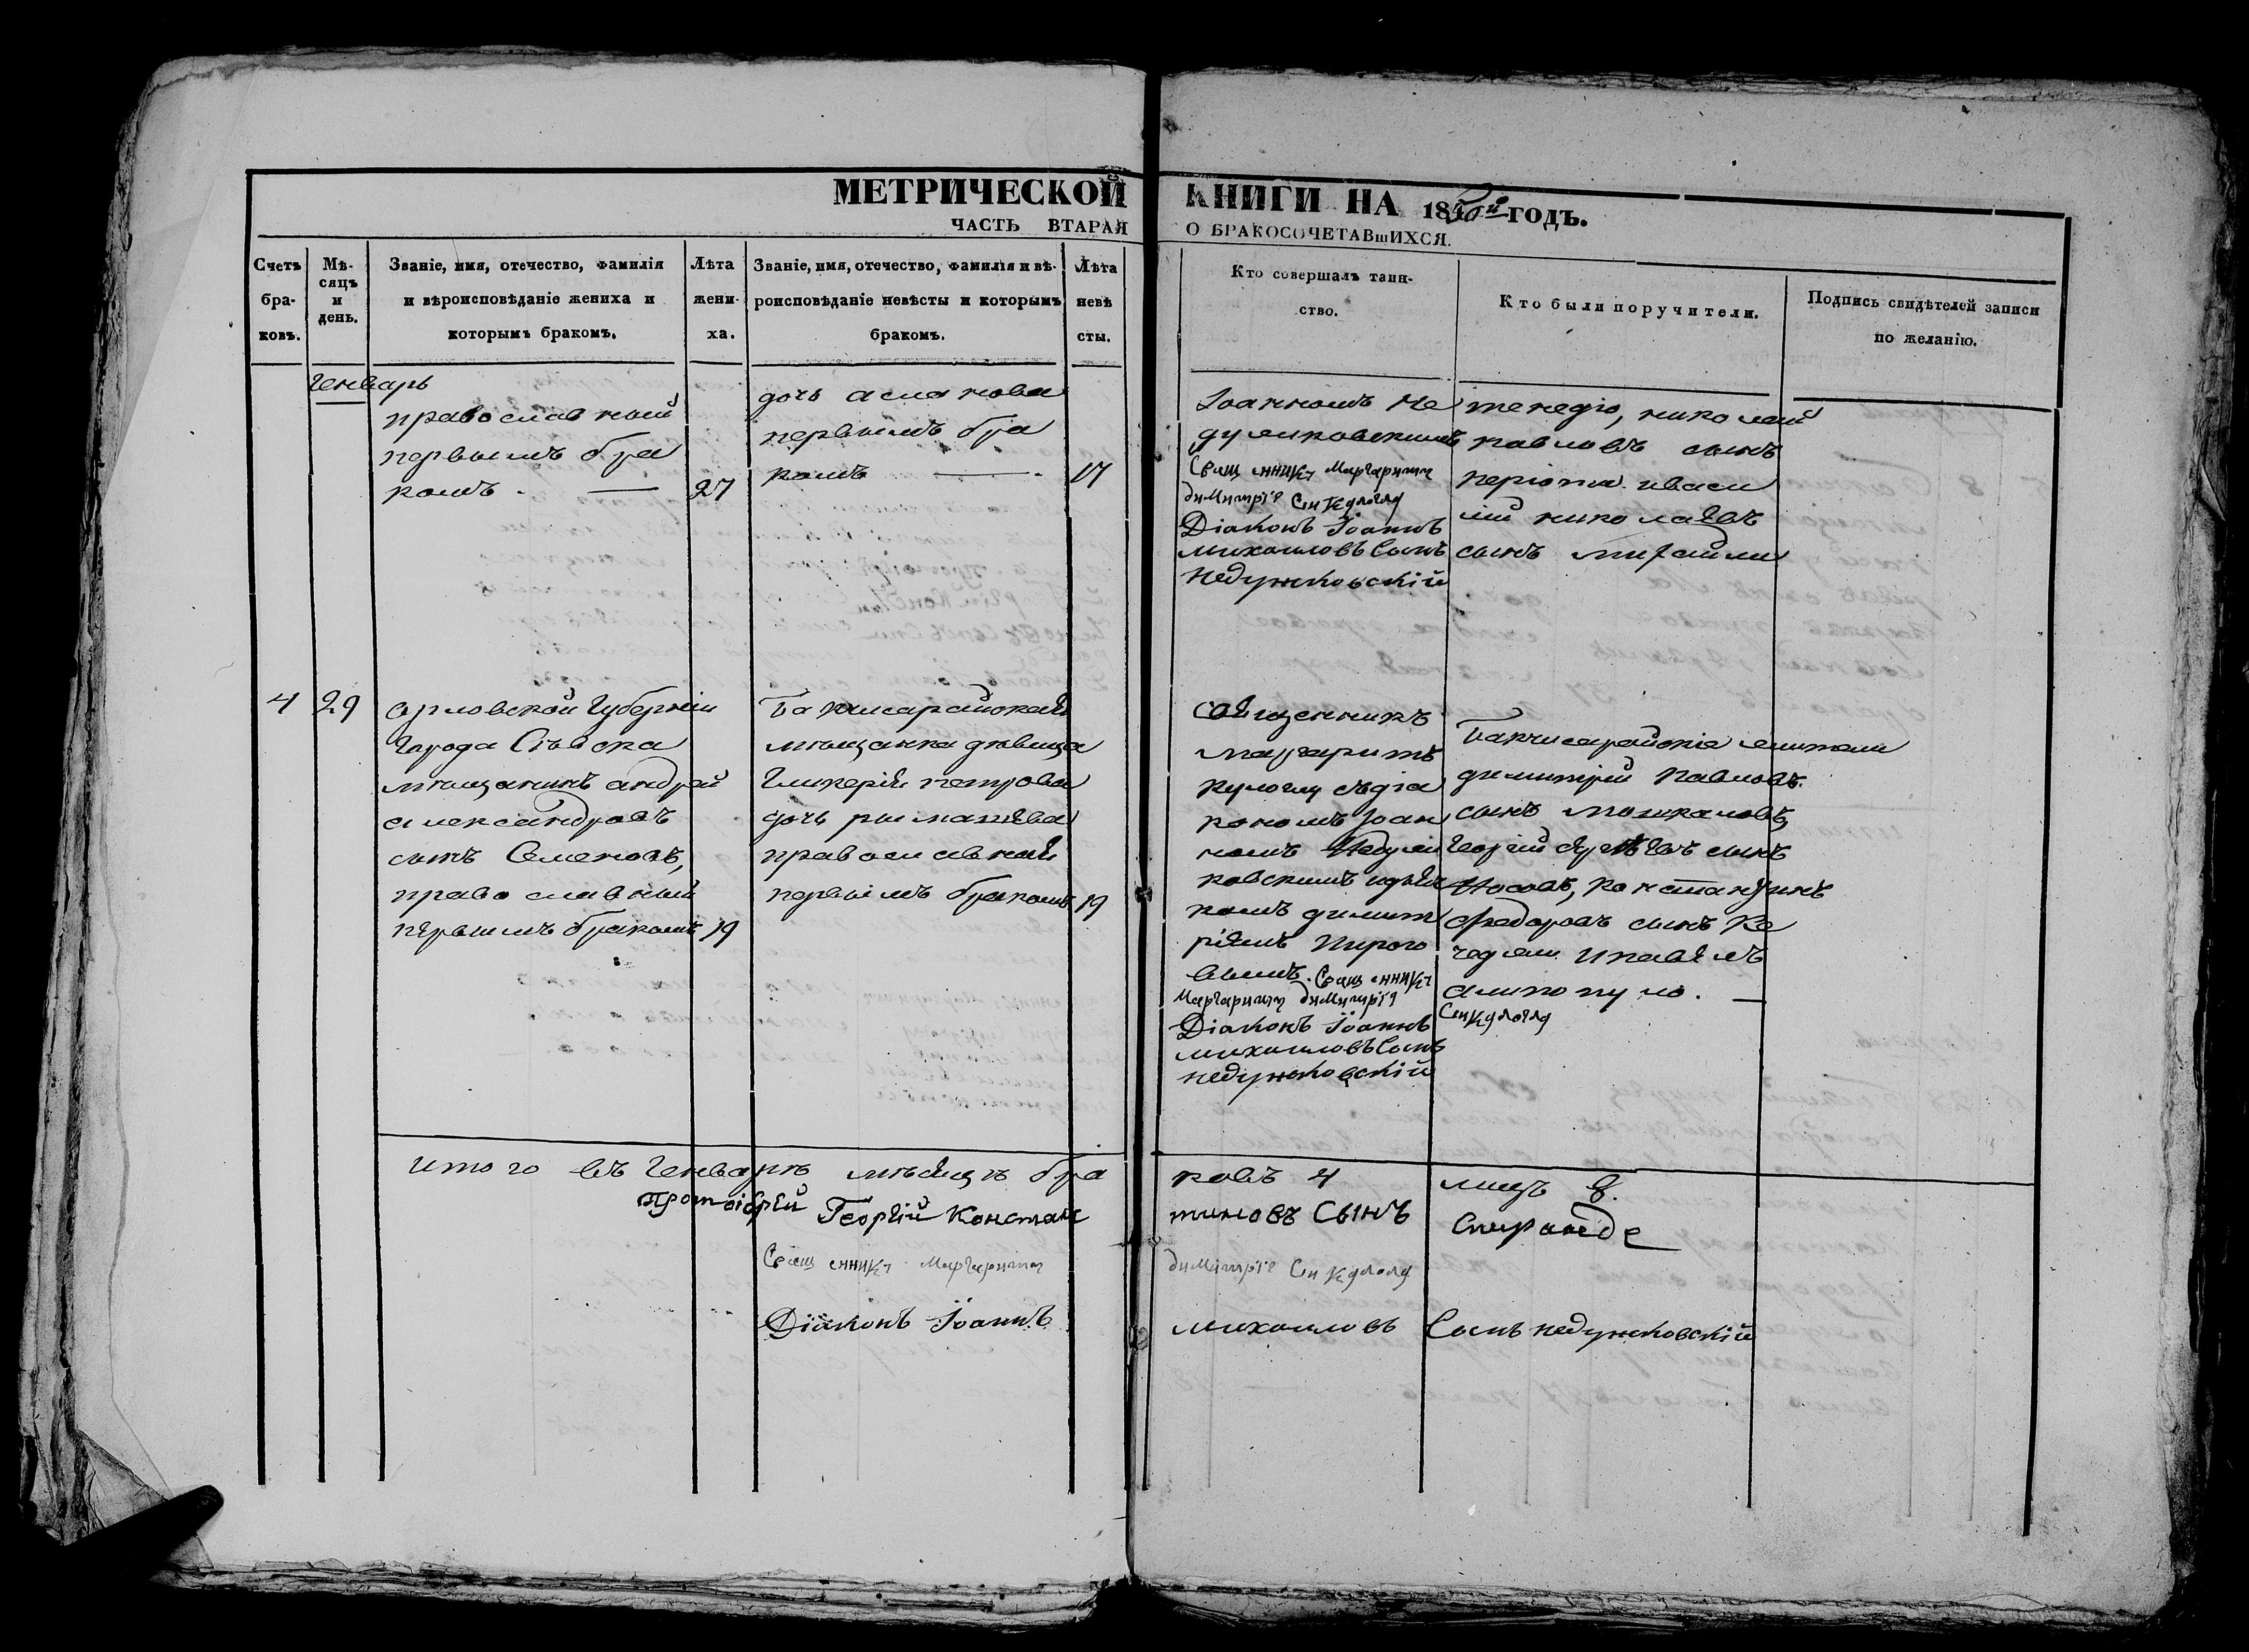 МЕТРИЧЕСКОЙ КНИГИ НА 1850й ГОДЪ.
ЧАСТЬ ВТАРАЯ О БРАКОСОЧЕТАВшИХСЯ.
Счетъ бра-ковъ.
Мѣ-сяцъ и день.
Званіе, имя, отечество, фамилія
и вѣроисповѣданіе жениха и
которымъ бракомъ.
Лѣта жени-ха.
Званіе, имя, отечество, фамилія и вѣ-
роисповѣданіе невѣсты и которымъ
бракомъ.
Лѣта невѣ сты.
Кто совершалъ таин-
ство.
Кто были поручители.
Подпись свидѣтелей записи
по желанію.
Генварь
православный
первымъ бра
комъ. — 27
дочь асланова
первымъ бра
комъ — 17
Іоанномъ Не
дулжковскимъ
Священникъ Маргаритъ
димитріе Синкулоглу
Діаконъ Іоаннъ
михаиловъ Сынъ
недужковскій
николай
павловъ сынъ
иваси
лій николаевъ
сынъ
4 29
орловской Губерніи
города Сѣвска
мѣщанинъ андрей
александровъ
сынъ Семеновъ,
православный
первымъ бракомъ 19
Бакчисарайская
мѣщанка дѣвица
Гликерія петрова
дочь
православная
первымъ бракомъ 19
священникъ
маргаритъ
кулоглу съдіа
кономъ Іоан
номъ Недулж
ковскимъ идья
комъ димит
ріемъ Пирого
вымъ. Священникъ
Маргаритъ димитрія
Синкулоглу
Діаконъ Іоаннъ
михаиловъ Сынъ
недужковскій
Бакчисарайскіе жители
димитрій Павловъ
сынъ
Георгій сынъ
Носовъ, константинъ
федоровъ сынъ Ке
чеджи и павелъ
алипопуло. —
итого въ Генварѣ мѣсяцѣ бра ковъ 4 лицъ 8.
протоіерей Георгій Констан тиновъ Сынъ Спиранде
Священникъ Маргаритъ димитріе Синкулоглу
Діаконъ Іоаннъ михаиловъ Сынъ недужковскій